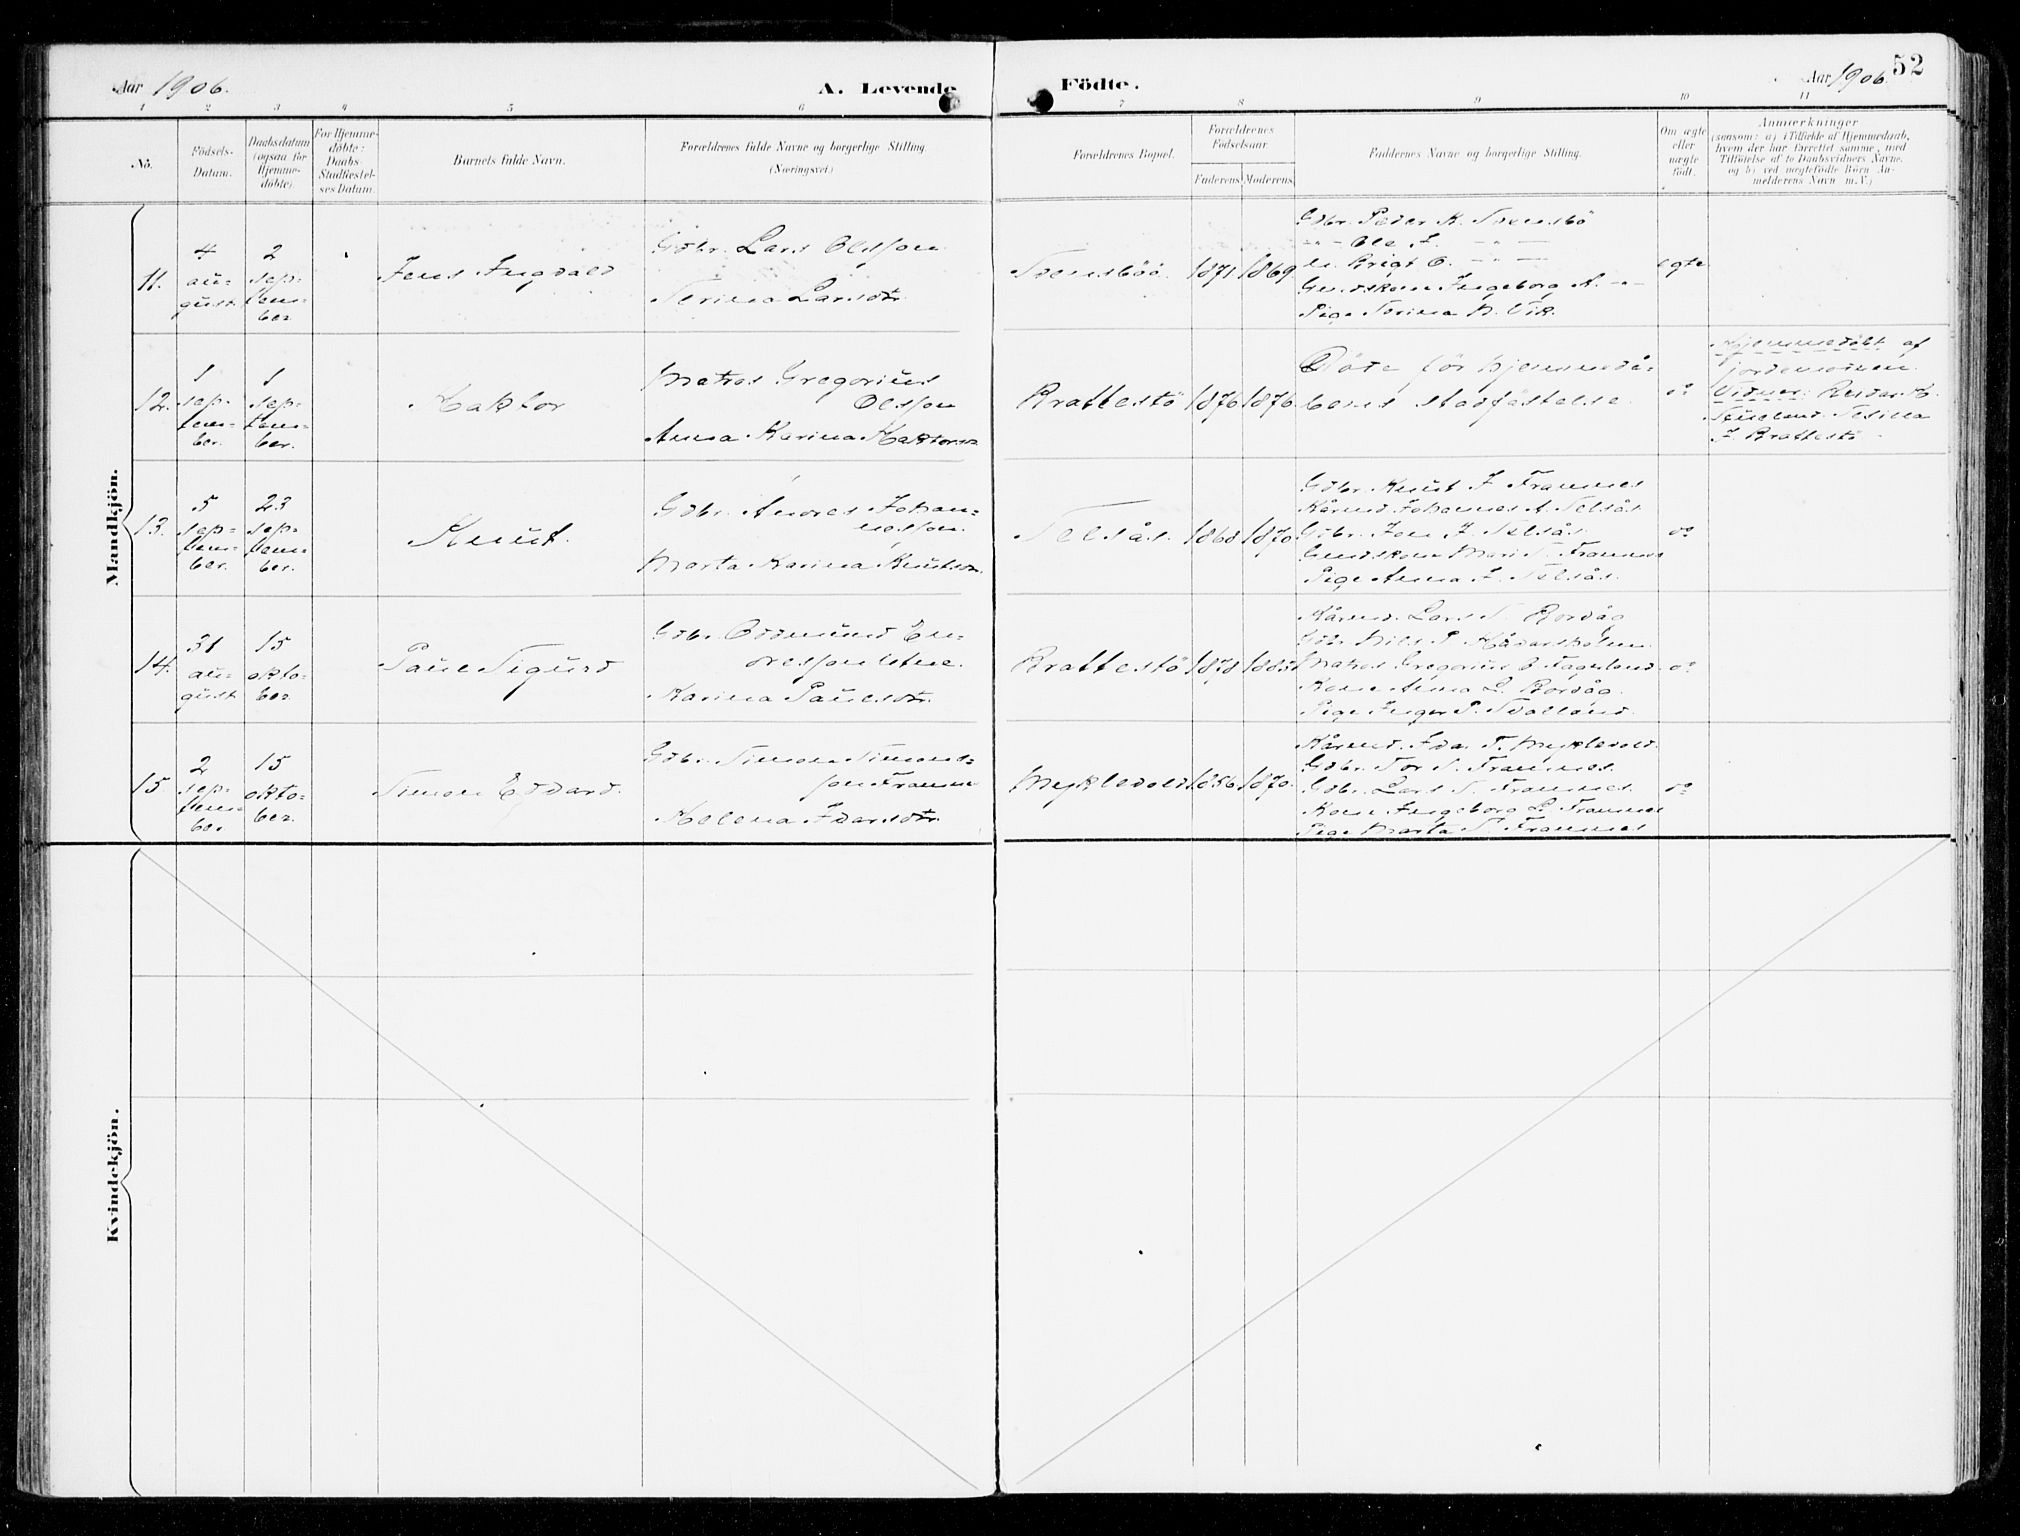 Aar 1906.
A. Levende
Födte.
Aar 1906.
52
1 2 3 4 5 6 7 8 9 10 11
Nö.
Födsels-
Datum.
Daabsdatum
(ogsaa for
Hjemme-
döbte).
For Hjemme-
döbte:
Daabs-
Stadfæstel-
ses Datum.
Barnets fulde Navn.
Forældrenes fulde Navne og borgerlige Stilling.
(Næringsvei)
Forældrenes Bopæl.
Forældrenes
Födselsaar.
Faderens
Moderens
Faddernes Navne og borgerlige Stilling.
Om ægte
eller
uægte
födt.
Anmærkninger
(saasom: a) i Tilfælde af Hjemmedaab,
hvem der har forrettet samme, med
Tilföielse af to Daabsvidners Navne,
og b) ved uægtefödte Börn An-
melderens Navn m.V.)
Mandkjön.
11.
4
au-
gust
2
sep-
tem-
ber
Jens Ingvald
Gdbr. Lars Olsson
Serina Larsdtr.
1871
1869
Gdbr. Peder K.
Ole J.
Ingeborg
Pige Serina N. Vik.
egte
12.
1
sep-
tem-
ber.
1
sep-
tem-
ber.
Haktor
Matros Gregorius
Olsson
Anna Karina
Brattestö
1876
1876
Döde för hjemmedå-
bens stadfestelse.
do
Hjemmedöbt af
jordemoderen.
Vidner: Reidar H.
J. Brattestö
13.
5
sep-
tem-
ber.
23
sep-
tem-
ber.
Knut.
Gdbr. Andres Johan-
nesson.
Marta Karina Knutsdtr.
Selsås.
1868
1870
Gdbr. Knut J. Framnes
Kårmd. Johannes A. Selsås
Gdbr. Jon J. Selsås
Mari Framnes
Pige Anna J. Selsås.
do
14.
31
au-
gust
15
okto-
ber
Paul Sigurd
Gdbr. Oddmund En-
Karina Paulsdtr.
Brattestö
1878
1885
Kårmd. Lars S. Bordåg
Gdbr. Nils P.
Matros Gregorius O. Fagerland
Kone Anna L. Bordåg
Pige Inger P.
do
15.
2
sep-
tem-
ber
15
okto-
ber
Simon Edvard.
Gdbr. Simon Simons-
son Framnes
Helena Idarsdtr.
Myklevold
1856
1870
Kårmd. Idar T. Myklevold.
Gdbr. Tor S. Framnes.
Gdbr. Lars S. Framnes.
Kone Ingeborg L. Framnes
Pige Marta S. Framnes
do
Kvindekjön.